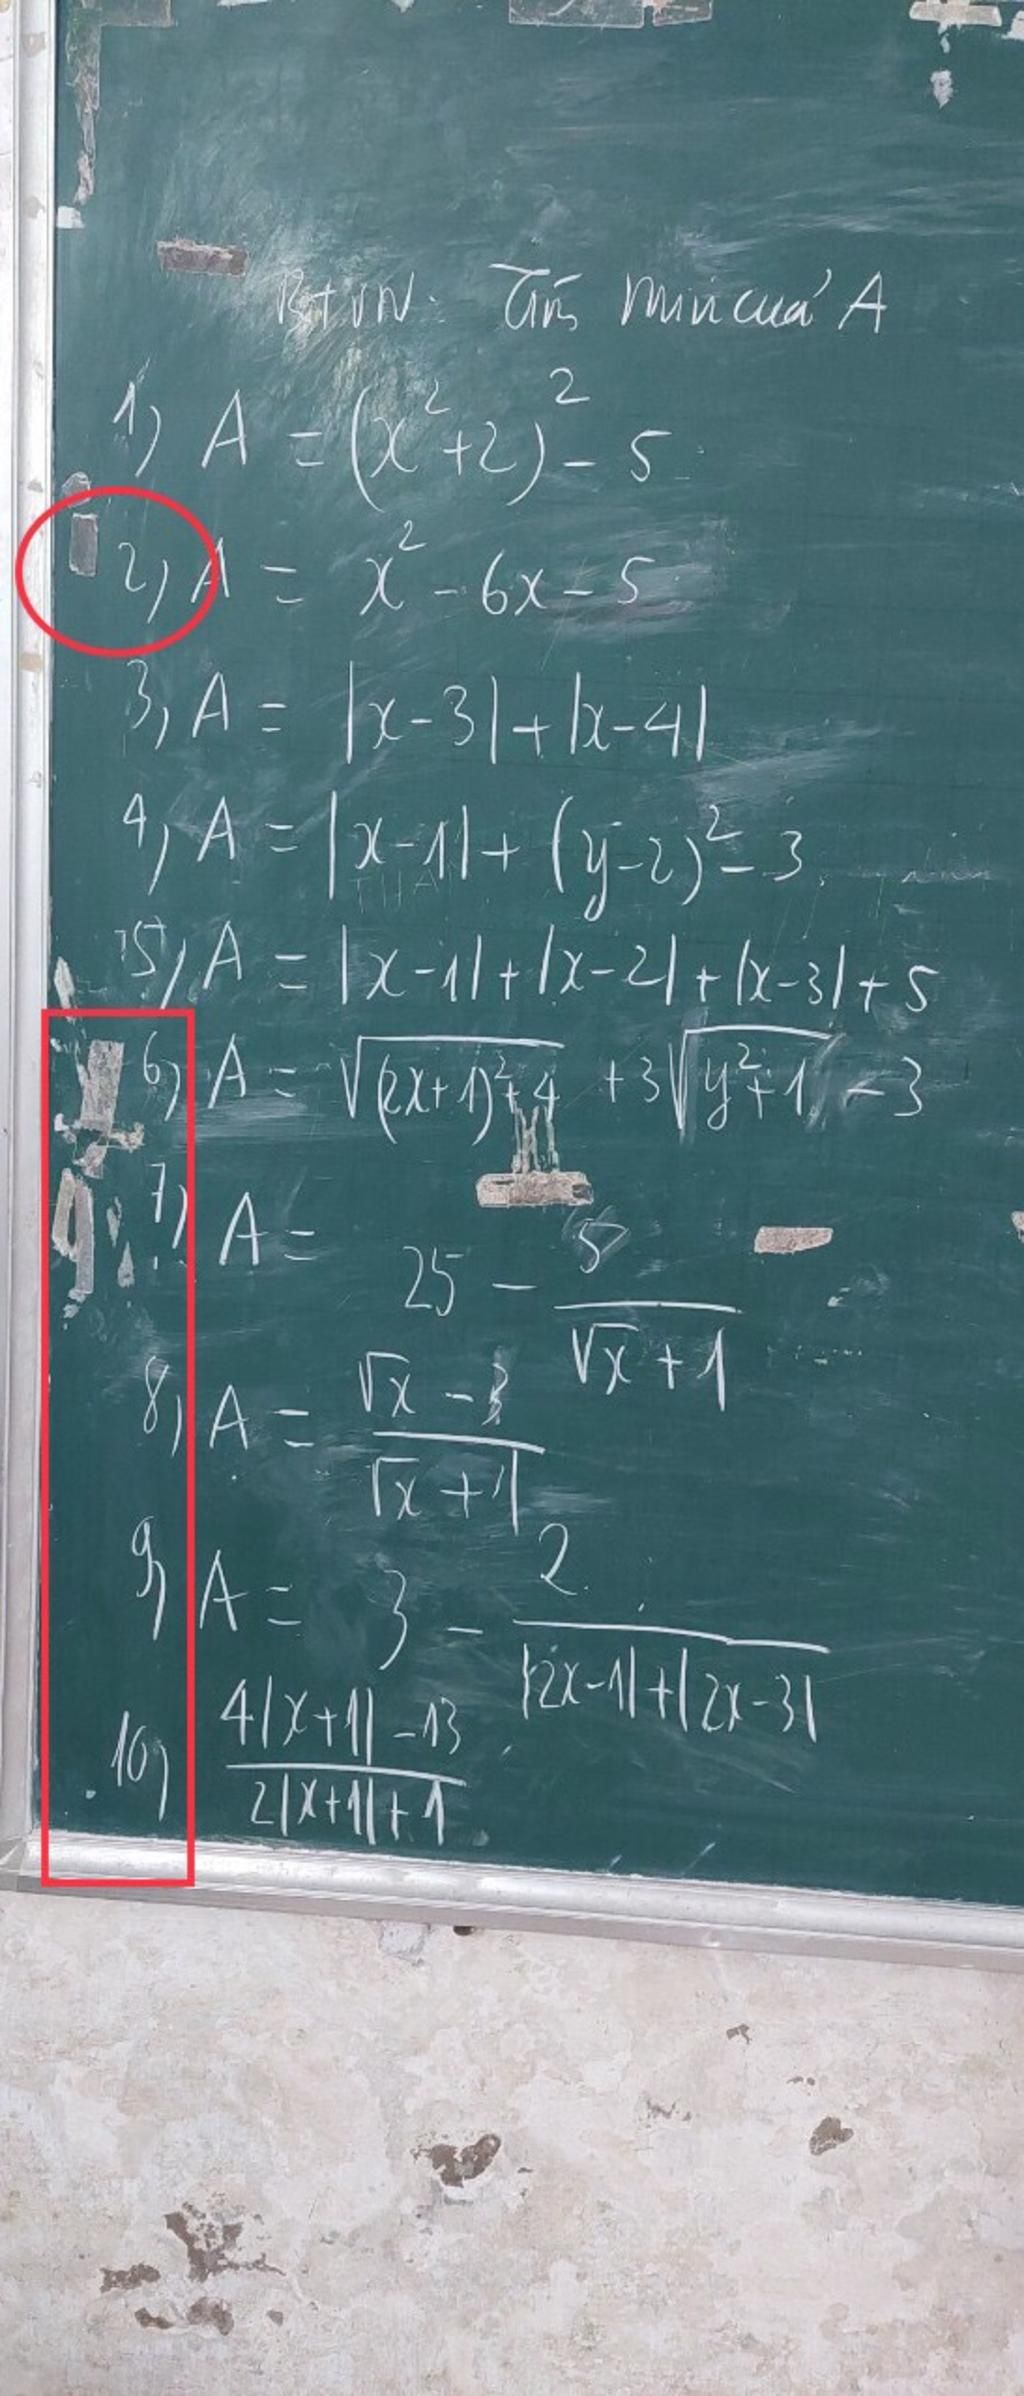 BTVN: Tìm min của A
1) A = (x²+2)² - 5
2) A = x² - 6x - 5
3) A = |x-3| + |x-4|
4) A = |x-1| + (y-2)² - 3
5) A = |x-1| + |x-2| + |x-3| + 5
6) A = √((2x+1)²+4) + 3√(y²+1) - 3
7) A = 25 - 5/(√x + 1)
8) A = (√x - 3)/(√x + 1)
9) A = 3 - 2/(|2x-1|+|2x-3|)
10) (4|x+1| - 13)/(2|x+1| + 1)